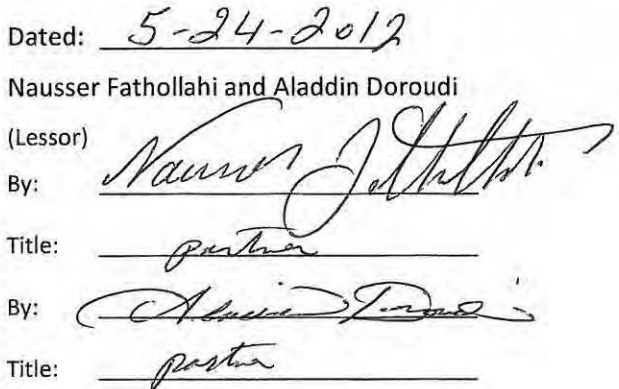 Dated: 5-24-2012
Nausser Fathollahi and Aladdin Doroudi
(Lessor)
By: Nausser Fathollahi
Title: partner
By: Aladdin Doroudi
Title: partner